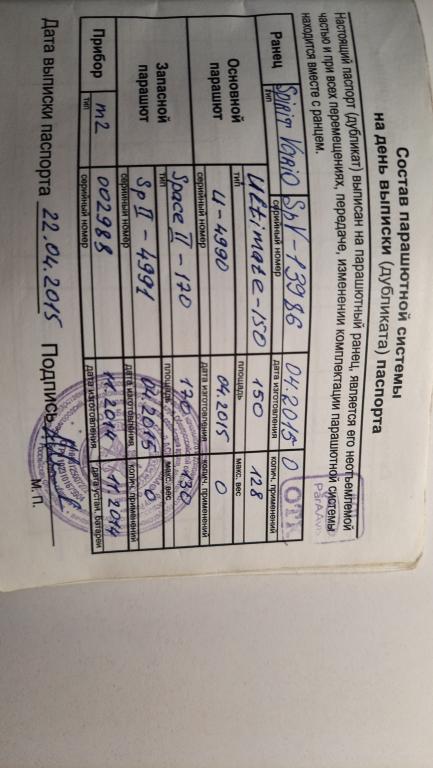 Состав парашютной системы
на день выписки (дубликата) паспорта
Настоящий паспорт (дубликат) выписан на парашютный ранец, является его неотъемлемой
частью и при всех перемещениях, передаче, изменении комплектации парашютной системы
находится вместе с ранцем.
Ранец Spirit Vario SpV-13986 04.2015 0
тип серийный номер дата изготовления колич. применений
Основной парашют Ultimate-150 150 128
тип площадь макс. вес
U-4990 04.2015 0
серийный номер дата изготовления колич. применений
Запасной парашют Space II-170 170 130
тип площадь макс. вес
Sp II-4991 04.2015 0
серийный номер дата изготовления колич. применений
Прибор m2 002988 11.2014 11.2014
тип серийный номер дата изготовления дата устан. батареи
Дата выписки паспорта 22.04.2015 Подпись
М. П.
ОТК
ParAAvis